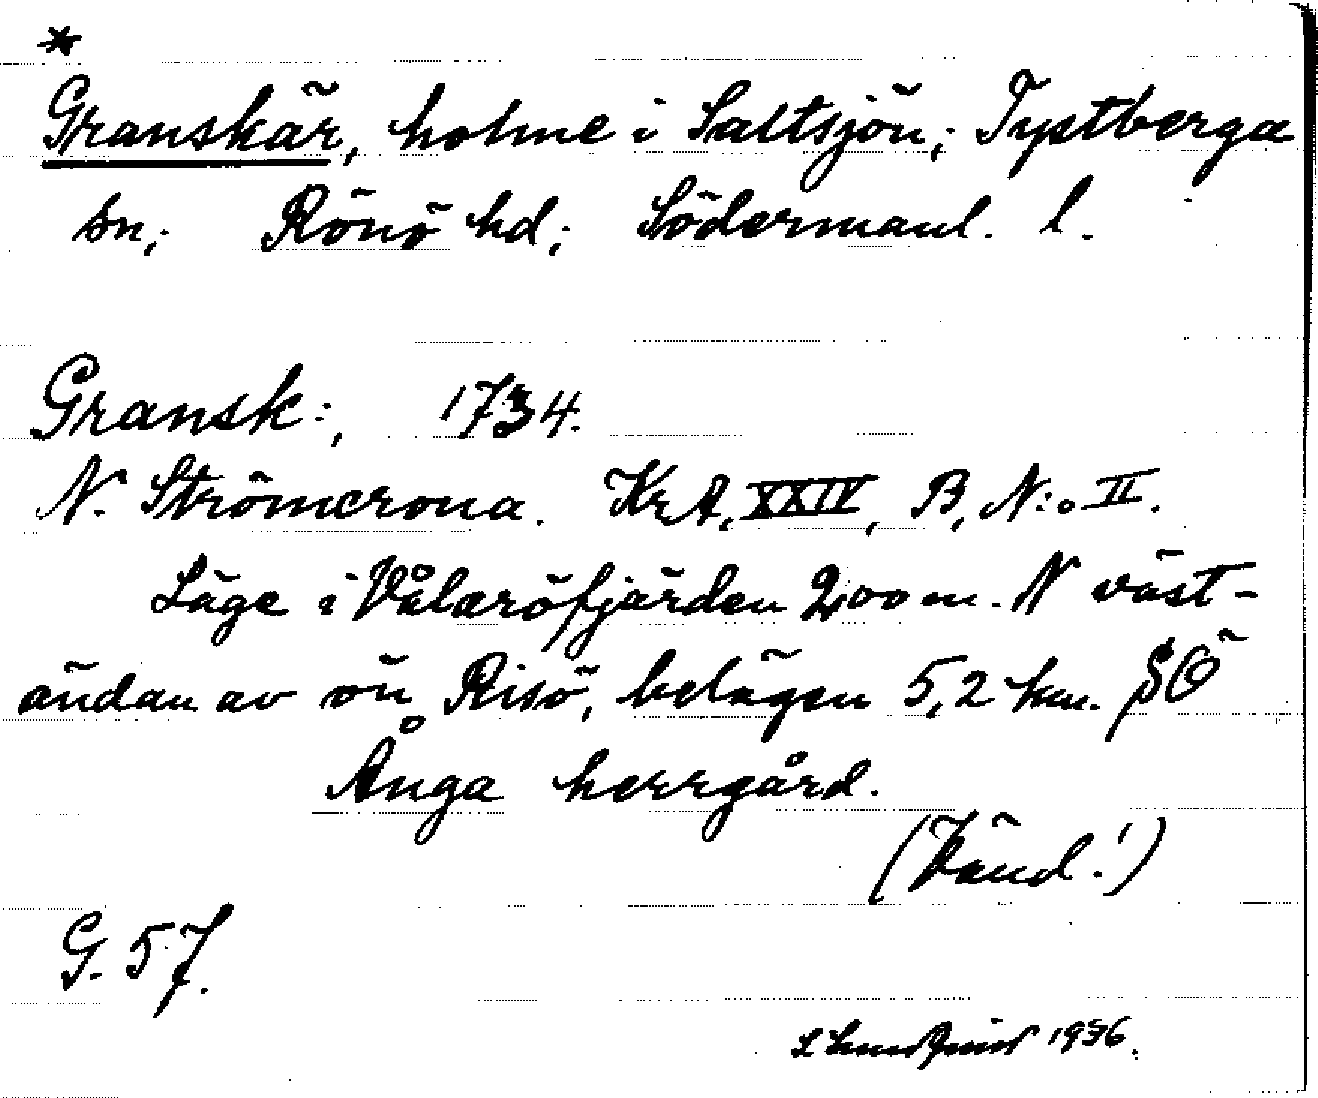 *
Granskär, holme i Saltsjön; Tystberga
sn; Rönö hd; Södermanl. l.
Gransk:, 1734.
N. Strömcrona. KrA, XXIV, B, N:o II.
Läge i Vålaröfjärden 200 m. N väst-
ändan av ön Risö, belägen 5,2 km. SÖ
Ånga herrgård.
(Vänd!)
G. 57.
L Lundquist 1936.